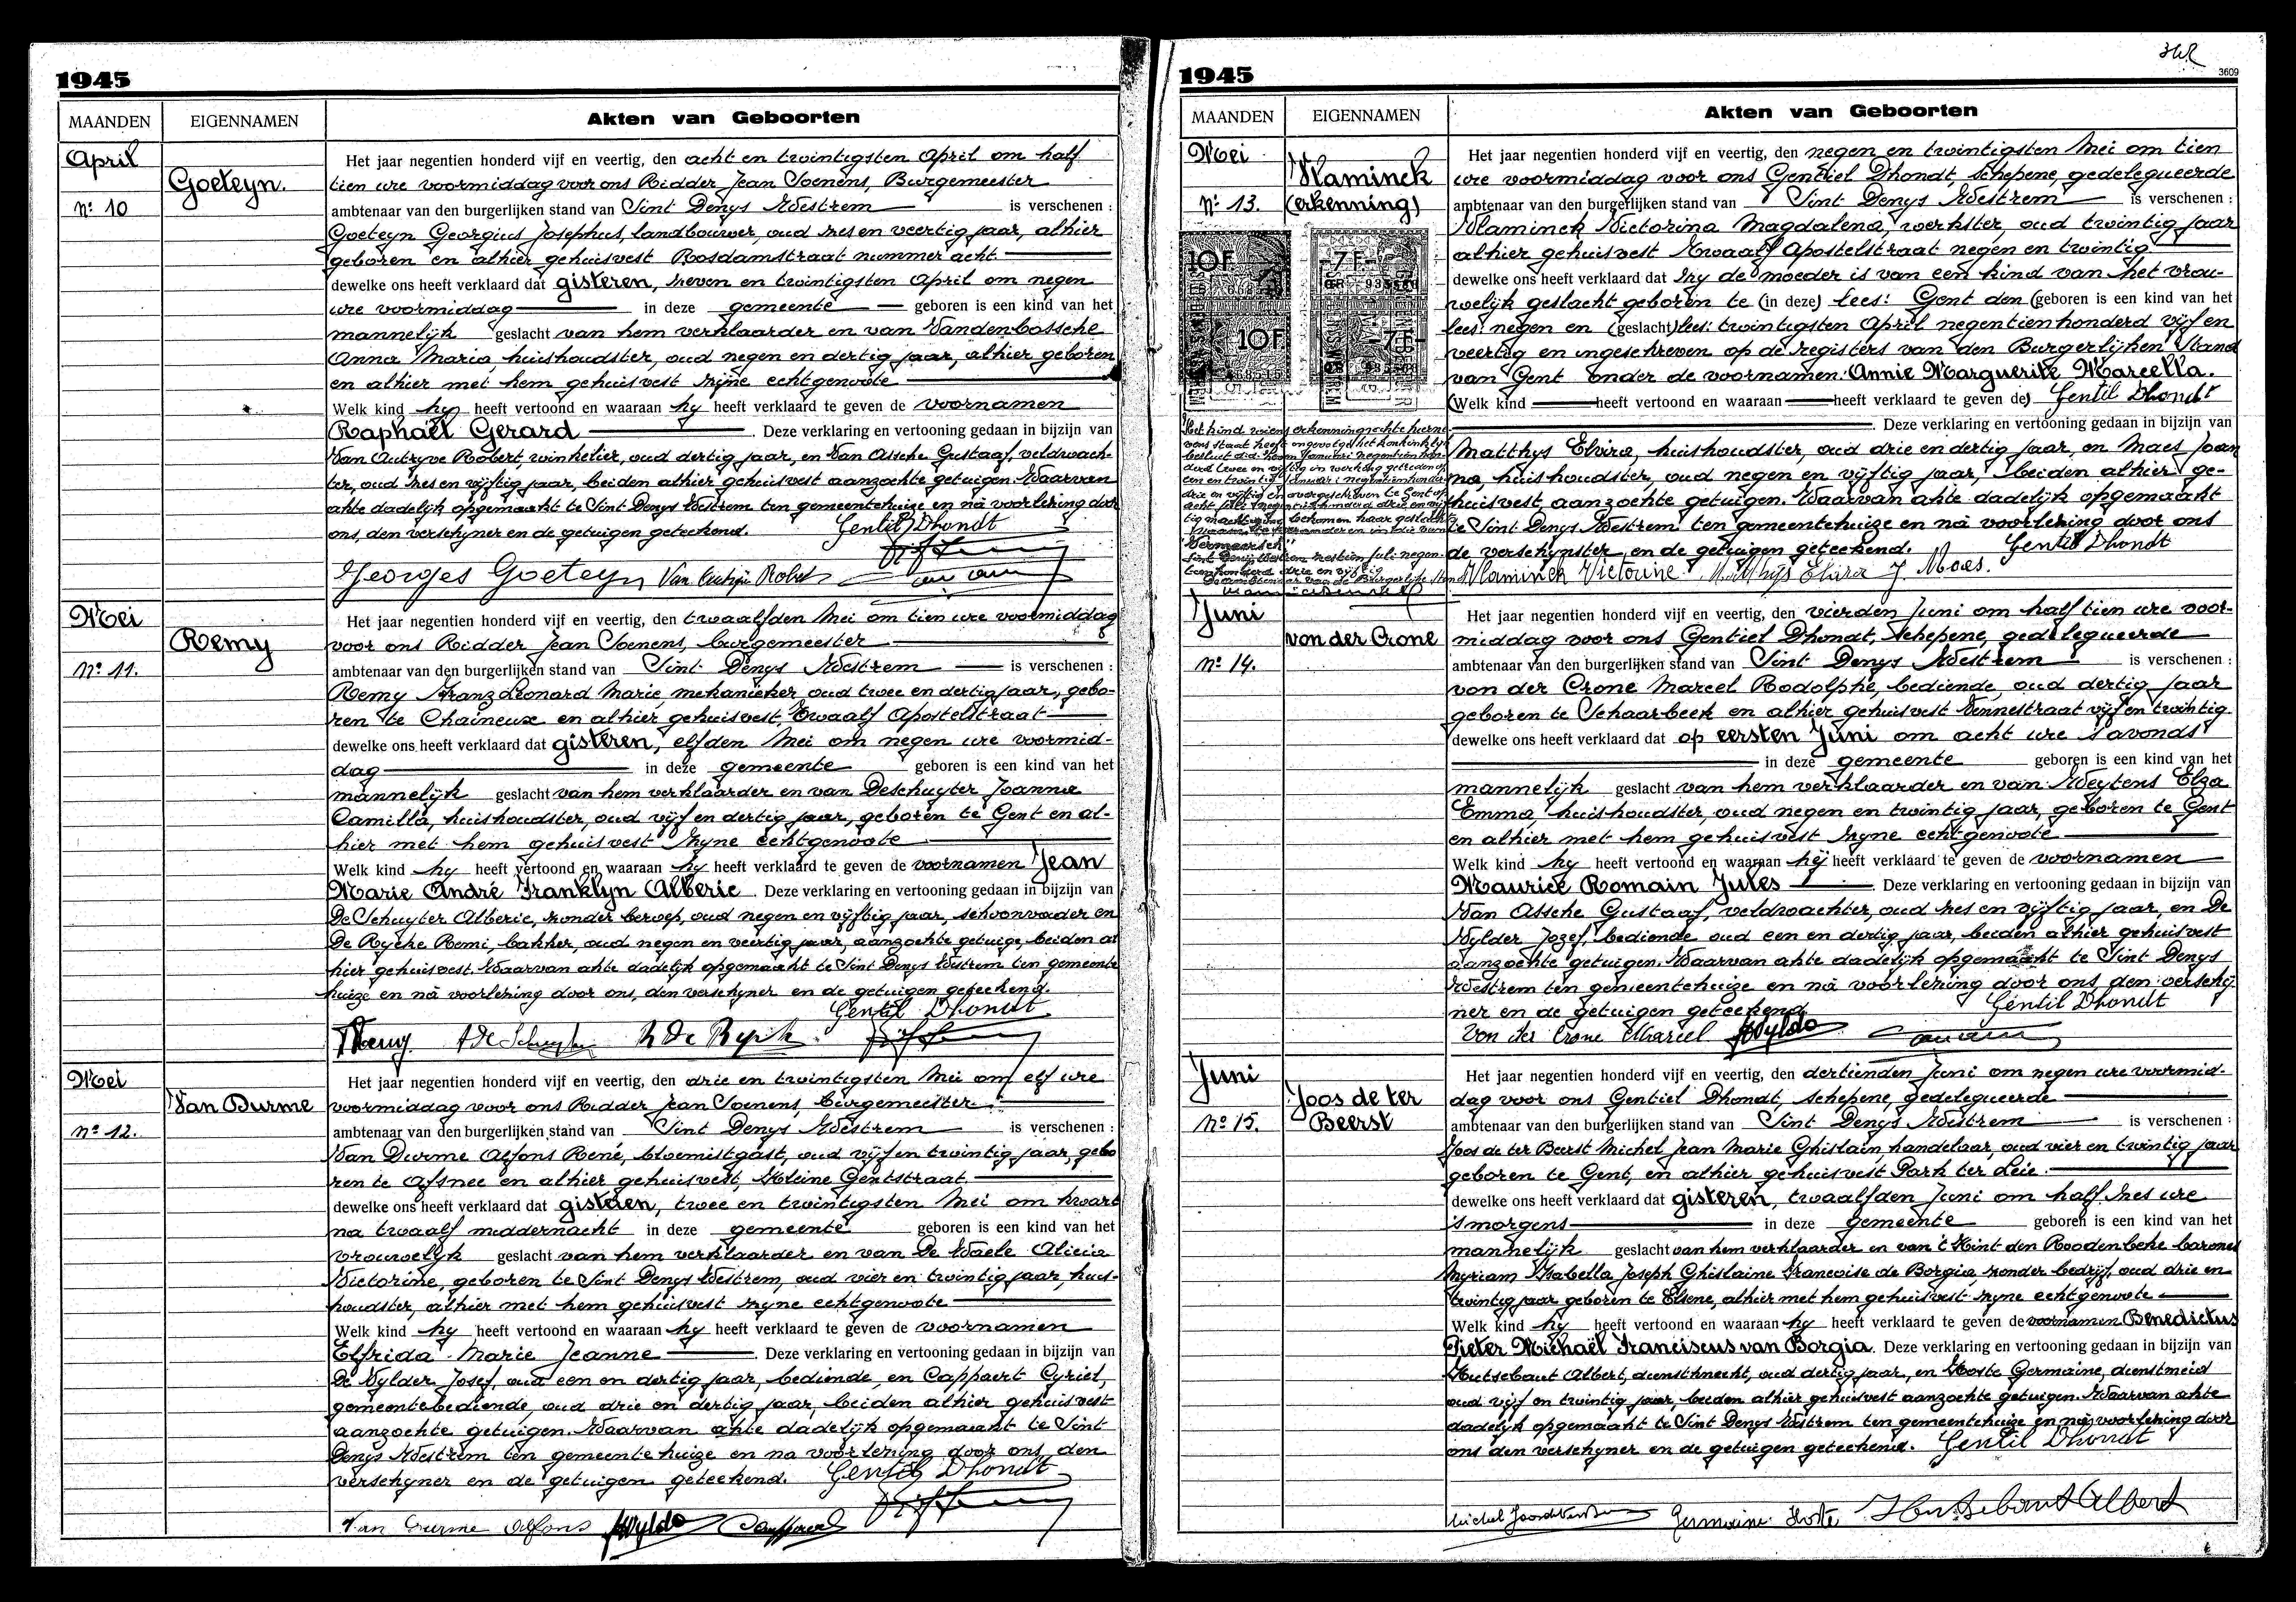 1945
MAANDEN EIGENNAMEN Akten van Geboorten
April
Goeteyn.
No 10
Het jaar negentien honderd vijf en veertig, den acht en twintigsten April om half
tien ure voormiddag voor ons Ridder Jean Soenens, Burgemeester
ambtenaar van den burgerlijken stand van Sint Denys Westrem is verschenen :
Goeteyn Georgius Josephus, landbouwer, oud zes en veertig jaar, alhier
geboren en alhier gehuisvest Rosdamstraat nummer acht
dewelke ons heeft verklaard dat gisteren, zeven en twintigsten April om negen
ure voormiddag in deze gemeente geboren is een kind van het
mannelijk geslacht van hem verklaarder en van Vandenbossche
Anna Maria, huishoudster, oud negen en dertig jaar, alhier geboren
en alhier met hem gehuisvest zyne echtgenoote
Welk kind hy heeft vertoond en waaraan hy heeft verklaard te geven de voornamen
Raphaël Gerard . Deze verklaring en vertooning gedaan in bijzijn van
Van Autryve Robert, winkelier, oud dertig jaar, en Van Assche Gustaaf, veldwach-
ter, oud zes en vijftig jaar, beiden alhier gehuisvest aanzochte getuigen. Waarvan
akte dadelijk opgemaakt te Sint Denys Westrem ten gemeentehuize en nà voorlezing door
ons, den verschyner en de getuigen geteekend. Gentil Dhondt
Georges Goeteyn Van Autryve Robert
Mei
Remy
No 11.
Het jaar negentien honderd vijf en veertig, den twaalfden Mei om tien ure voormiddag
voor ons Ridder Jean Soenens, burgemeester
ambtenaar van den burgerlijken stand van Sint Denys Westrem is verschenen :
Remy Franz Leonard Marie, mekanieker oud twee en dertig jaar, gebo-
ren te Chaineux en alhier gehuisvest, Twaalf Apostelstraat
dewelke ons heeft verklaard dat gisteren, elfden Mei om negen ure voormid-
dag in deze gemeente geboren is een kind van het
mannelijk geslacht van hem verklaarder en van Deschuyter Joanna
Camilla, huishoudster, oud vijf en dertig jaar, geboren te Gent en al-
hier met hem gehuisvest zyne echtgenoote
Welk kind hy heeft vertoond en waaraan hy heeft verklaard te geven de voornamen Jean
Marie André Franklyn Alberic . Deze verklaring en vertooning gedaan in bijzijn van
De Schuyter Alberic, zonder beroep, oud negen en vijftig jaar, schoonvader en
De Rycke Remi, bakker, oud negen en veertig jaar, aanzochte getuige, beiden al
hier gehuisvest. Waarvan akte dadelijk opgemaakt te Sint Denys Westrem ten gemeente
huize en nà voorlezing door ons, den verschyner en de getuigen geteekend.
Gentil Dhondt
FRemy A De Schuyter R De Rycke
Mei
Van Durme
No 12.
Het jaar negentien honderd vijf en veertig, den drie en twintigsten Mei om elf ure
voormiddag voor ons Ridder Jean Soenens, burgemeester
ambtenaar van den burgerlijken stand van Sint Denys Westrem is verschenen :
Van Durme Alfons René, bloemistgast, oud vijf en twintig jaar, gebo
ren te Afsnee en alhier gehuisvest, Kleine Gentstraat
dewelke ons heeft verklaard dat gisteren, twee en twintigsten Mei om kwart
na twaalf middernacht in deze gemeente geboren is een kind van het
vrouwelijk geslacht van hem verklaarder en van De Waele Alicia
Victorine, geboren te Sint Denys Westrem, oud vier en twintig jaar, huis-
houdster, alhier met hem gehuisvest zyne echtgenoote
Welk kind hy heeft vertoond en waaraan hy heeft verklaard te geven de voornamen
Elfrida Marie Jeanne . Deze verklaring en vertooning gedaan in bijzijn van
De Wylder Josef, oud een en dertig jaar, bediende, en Cappaert Cyriel,
gemeentebediende, oud drie en dertig jaar, beiden alhier gehuisvest
aanzochte getuigen. Waarvan akte dadelijk opgemaakt te Sint
Denys Westrem ten gemeente huize en na voorlezing door ons, den
verschyner en de getuigen geteekend. Gentil Dhondt
Van Durme Alfons
1945
3609
MAANDEN EIGENNAMEN Akten van Geboorten
Mei
Vlaminck
No 13. (erkenning)
10F 7F
10F 7F
Het jaar negentien honderd vijf en veertig, den negen en twintigsten Mei om tien
ure voormiddag voor ons Gentiel Dhondt, schepene, gedelegueerde
ambtenaar van den burgerlijken stand van Sint Denys Westrem is verschenen :
Vlaminck Victorina Magdalena, werkster, oud twintig jaar
alhier gehuisvest Twaalf Apostelstraat negen en twintig
dewelke ons heeft verklaard dat zy de moeder is van een kind van het vrou-
welijk geslacht geboren te (in deze) lees: Gent den (geboren is een kind van het
lees: negen en (geslacht) lees: twintigsten April negentienhonderd vijf en
veertig en ingeschreven op de registers van den Burgerlijken Stand
van Gent onder de voornamen: Annie Marguerite Marcella.
(Welk kind heeft vertoond en waaraan heeft verklaard te geven de) Gentil Dhondt
. Deze verklaring en vertooning gedaan in bijzijn van
Matthys Elvira, huishoudster, oud drie en dertig jaar, en Maes Joan
na, huishoudster, oud negen en vijftig jaar, beiden alhier ge-
huisvest, aanzochte getuigen. Waarvan akte dadelijk opgemaakt
te Sint Denys Westrem ten gemeentehuize en nà voorlezing door ons
de verschynster en de getuigen geteekend. Gentil Dhondt
Vlaminck Victorine Matthijs Elvira J. Maes.
Het kind wiens erkenningsakte hierne
vens staat heeft ingevolge het koninklijk
besluit d.d. Januari negentien hon-
derd twee en vijftig in werking getreden op
een en twintig Januari negentienhonderd
drie en vijftig en overgeschreven te Gent op
acht Juli negentienhonderd drie en vijf
tig machtiging bekomen haar geslachts
naam te veranderen in die van
"Vermeersch"
Sint Denijs Westrem zestien Juli negen-
tienhonderd drie en vijftig
De ambtenaar van de Burgerlijke Stand
Juni
von der Crone
No 14.
Het jaar negentien honderd vijf en veertig, den vierden Juni om half tien ure voor-
middag voor ons Gentiel Dhondt, schepene, gedelegueerde
ambtenaar van den burgerlijken stand van Sint Denys Westrem is verschenen :
von der Crone Marcel Rodolphe, bediende, oud dertig jaar
geboren te Schaarbeek en alhier gehuisvest Vennestraat vijf en twintig
dewelke ons heeft verklaard dat op eersten Juni om acht ure s'avonds
in deze gemeente geboren is een kind van het
mannelijk geslacht van hem verklaarder en van Weytens Elza
Emma, huishoudster, oud negen en twintig jaar, geboren te Gent
en alhier met hem gehuisvest zyne echtgenoote
Welk kind hy heeft vertoond en waaraan hij heeft verklaard te geven de voornamen
Maurice Romain Jules . Deze verklaring en vertooning gedaan in bijzijn van
Van Assche Gustaaf, veldwachter, oud zes en vijftig jaar, en De
Wylder Jozef, bediende oud een en dertig jaar, beiden alhier gehuisvest
aanzochte getuigen. Waarvan akte dadelijk opgemaakt te Sint Denys
Westrem ten gemeentehuize en nà voorlezing door ons den verschij
ner en de getuigen geteekend Gentil Dhondt
Von der Crone Marcel
Juni
Joos de ter
No 15. Beerst
Het jaar negentien honderd vijf en veertig, den dertienden Juni om negen ure voormid-
dag voor ons Gentiel Dhondt, schepene, gedelegueerde
ambtenaar van den burgerlijken stand van Sint Denys Westrem is verschenen :
Joos de ter Beerst Michel Jean Marie Ghislain, handelaar, oud vier en twintig jaar
geboren te Gent, en alhier gehuisvest Park ter Leie.
dewelke ons heeft verklaard dat gisteren, twaalfden Juni om half zes ure
's morgens in deze gemeente geboren is een kind van het
mannelijk geslacht van hem verklaarder en van 't Kint den Roodenbeke barones
Myriam Isabella Joseph Ghislaine Francoise de Borgia, zonder bedrijf, oud drie en
twintig jaar geboren te Elsene, alhier met hem gehuisvest zyne echtgenoote
Welk kind hy heeft vertoond en waaraan hy heeft verklaard te geven de voornamen Benedictus
Pieter Michaël Franciscus van Borgia. Deze verklaring en vertooning gedaan in bijzijn van
Hutsebaut Albert, dienstknecht, oud dertig jaar, en Hoste Germaine, dienstmeid
oud vijf en twintig jaar, beiden alhier gehuisvest aanzochte getuigen. Waarvan akte
dadelijk opgemaakt te Sint Denys Westrem ten gemeentehuize en nà voorlezing door
ons den verschyner en de getuigen geteekend. Gentil Dhondt
Germaine Hoste Hutsebaut Albert